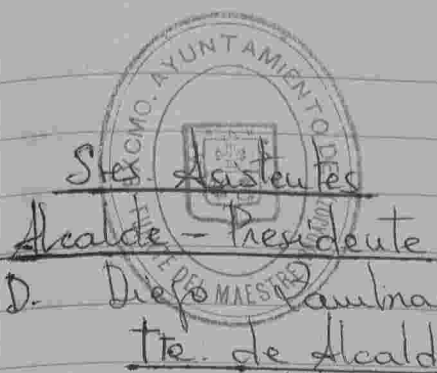 EXCMO. AYUNTAMIENTO DE
FUENTE DEL MAESTRE
Sres. Asistentes
Alcalde - Presidente
D. Diego
Tte. de Alcald